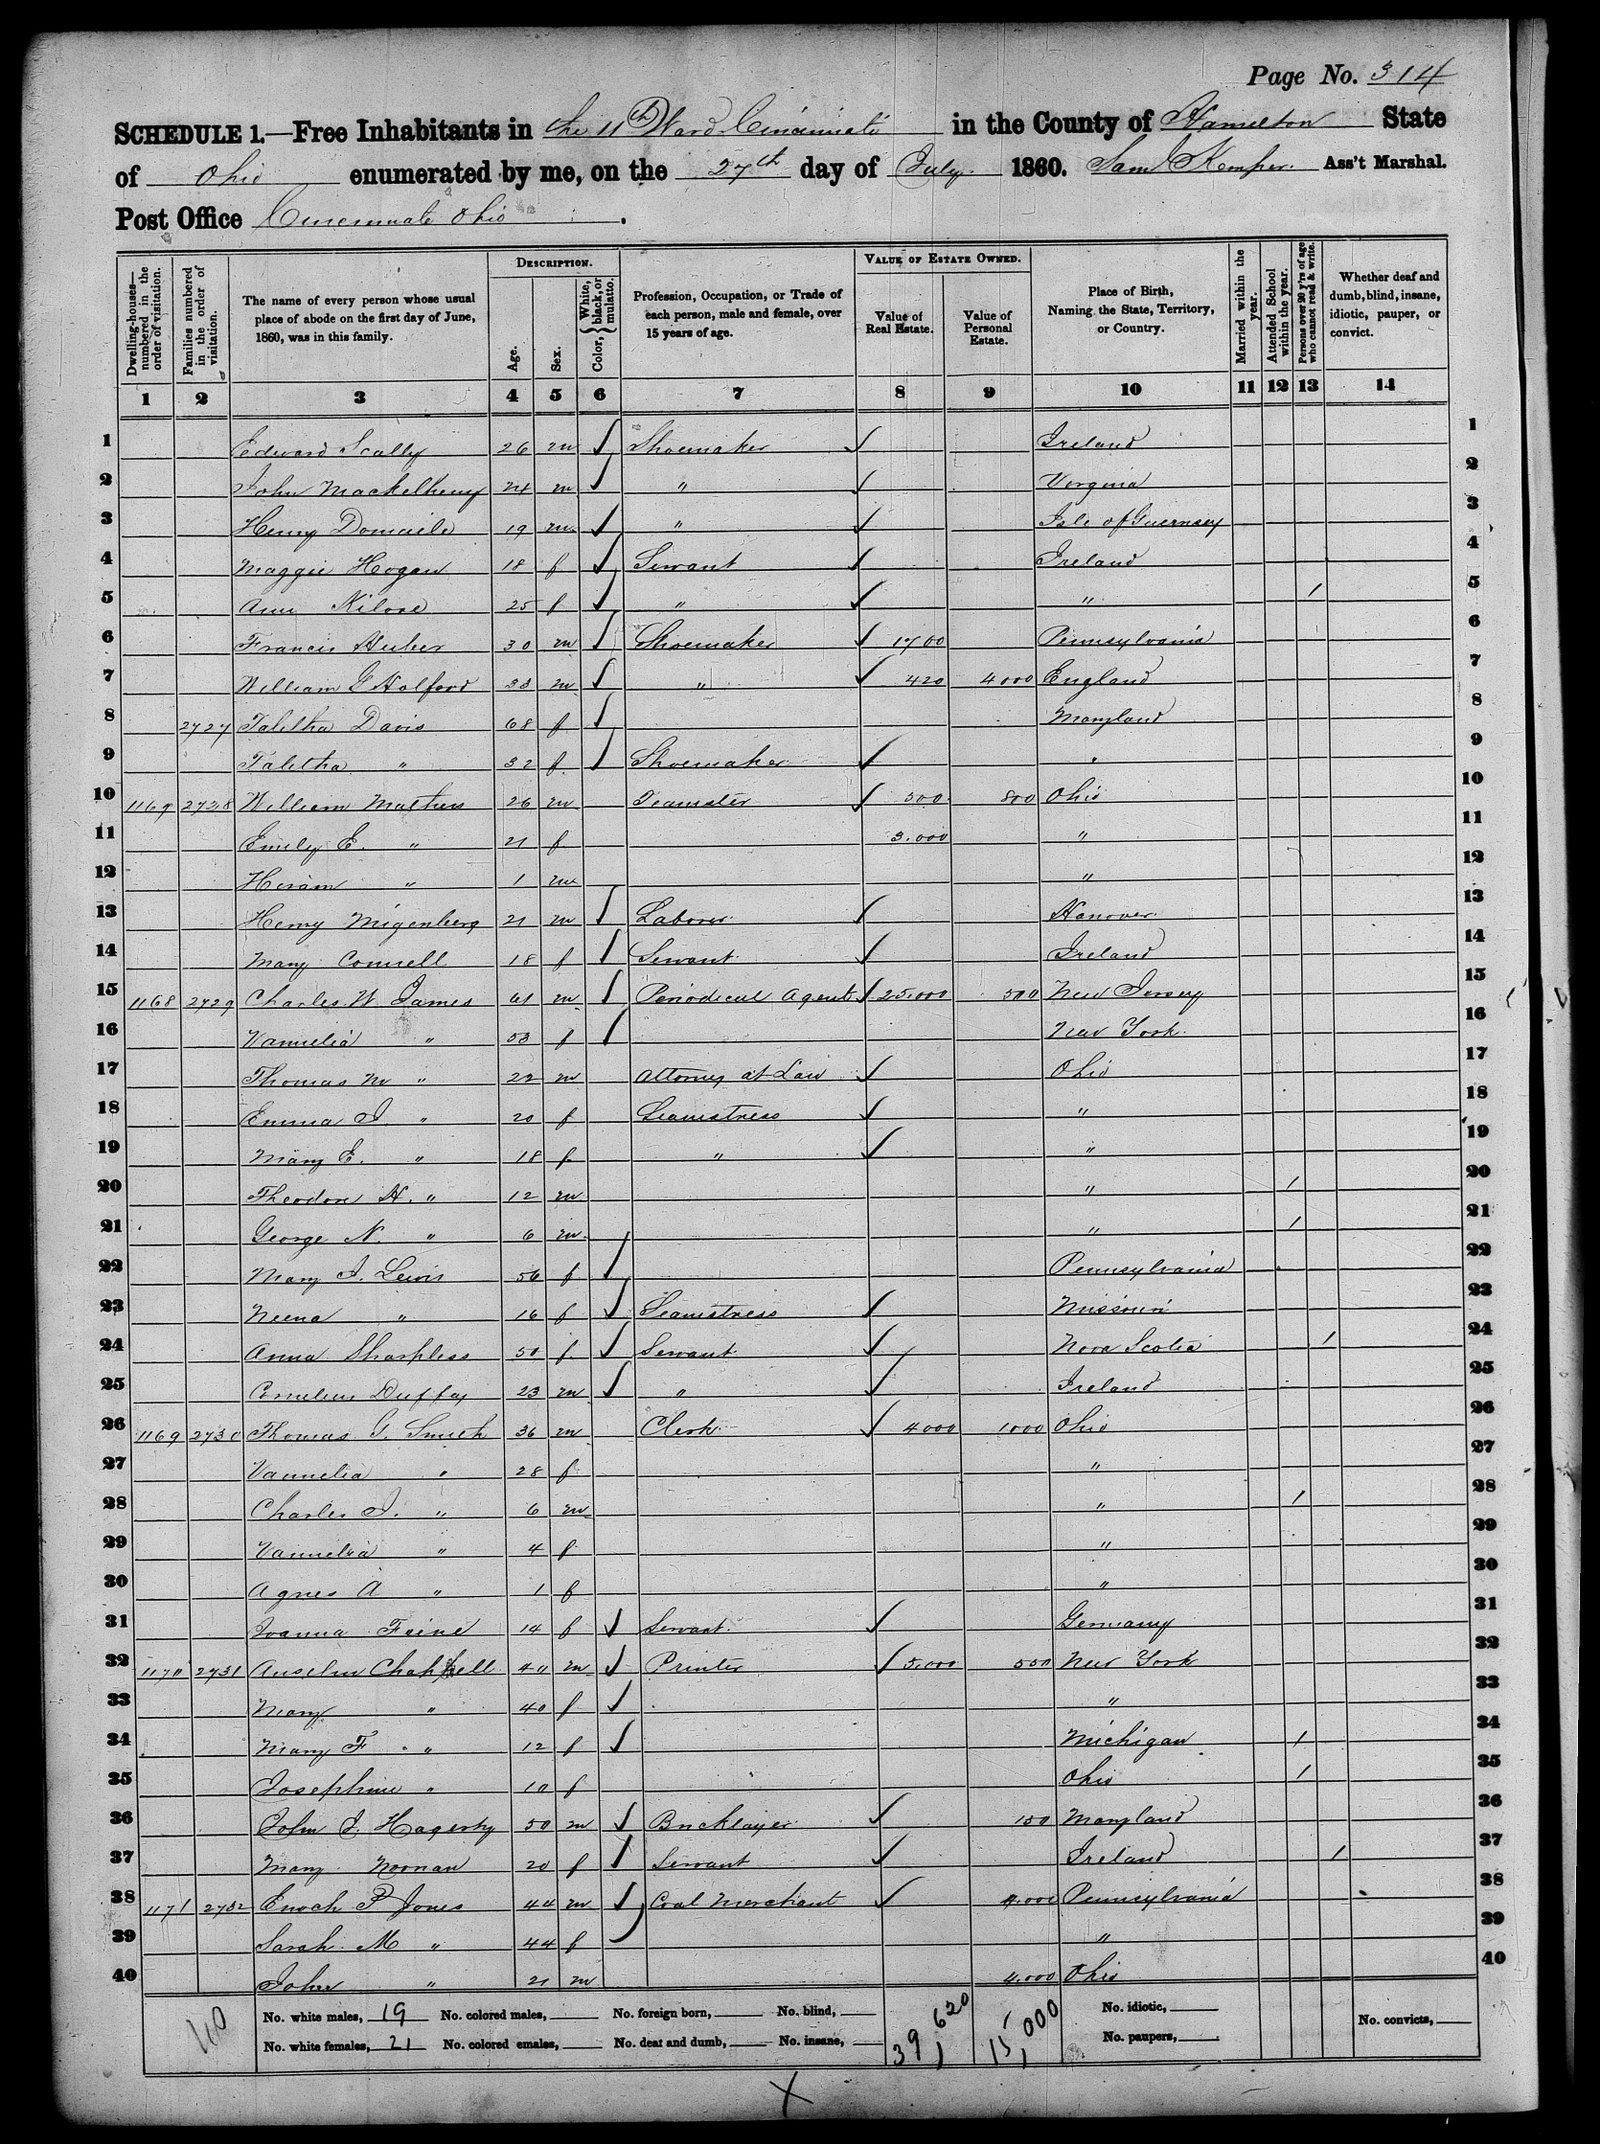 Page No. 314
SCHEDULE 1.—Free Inhabitants in the 11th Ward Cincinnati in the County of Hamilton State
of Ohio enumerated by me, on the 27th day of July. 1860. Sam J Kemper. Ass't Marshal.
Post Office Cincinnati Ohio.
DESCRIPTION. VALUE OF ESTATE OWNED.
Dwelling-houses—numbered in the order of visitation.
Families numbered in the order of visitation.
The name of every person whose usual place of abode on the first day of June, 1860, was in this family.
Age.
Sex.
Color, { White, black, or mulatto.
Profession, Occupation, or Trade of each person, male and female, over 15 years of age.
Value of Real Estate.
Value of Personal Estate.
Place of Birth, Naming the State, Territory, or Country.
Married within the year.
Attended School within the year.
Persons over 20 y'rs of age who cannot read & write.
Whether deaf and dumb, blind, insane, idiotic, pauper, or convict.
1 2 3 4 5 6 7 8 9 10 11 12 13 14
1 Edward Scally 26 m ✓ Shoemaker ✓ Ireland 1
2 John Mackelheny 24 m ✓ " ✓ Virginia 2
3 Henry 19 m ✓ " ✓ Isle of Guernsey 3
4 Maggie Hogan 18 f ✓ Servant ✓ Ireland 4
5 Ann 25 f ✓ " ✓ " / 5
6 Francis Huber 30 m ✓ Shoemaker ✓ 1700 Pennsylvania 6
7 William G Halford 33 m ✓ " ✓ 420 4000 England 7
8 2727 Talitha Davis 68 f ✓ Maryland 8
9 Talitha " 32 f ✓ Shoemaker ✓ " 9
10 1167 2728 William Mathers 26 m Teamster ✓ 500 800 Ohio 10
11 Emily E. " 21 f 3.000 " 11
12 Hiram " 1 m " 12
13 Henry Migenberg 21 m ✓ Laborer ✓ Hanover 13
14 Mary Connell 18 f ✓ Servant ✓ Ireland 14
15 1168 2729 Charles W James 61 m ✓ Periodical Agent ✓ 25.000 500 New Jersey 15
16 Vannelia " 53 f ✓ New York 16
17 Thomas M " 22 m Attorney at Law ✓ Ohio 17
18 Emma J. " 20 f Seamstress ✓ " 18
19 Mary E. " 18 f " ✓ " 19
20 Theodore H. " 12 m " / 20
21 George N. " 6 m " / 21
22 Mary J. Lewis 56 f ✓ Pennsylvania 22
23 Neena " 16 f ✓ Seamstress ✓ Missouri 23
24 Anna Sharpless 50 f ✓ Servant ✓ Nova Scotia / 24
25 Cornelius Duffey 23 m ✓ " ✓ Ireland 25
26 1169 2730 Thomas G. Smith 36 m Clerk ✓ 4000 1000 Ohio 26
27 Vannelia " 28 f " 27
28 Charles J. " 6 m " / 28
29 Vannelia " 4 f " 29
30 Agnes A " 1 f " 30
31 Joanna Feine 14 f ✓ Servant ✓ Germany 31
32 1170 2731 Anselm Chappell 40 m ✓ Printer ✓ 5.000 550 New York 32
33 Mary " 40 f ✓ " 33
34 Mary F " 12 f ✓ Michigan / 34
35 Josephine " 10 f Ohio / 35
36 John J. Hagerty 50 m ✓ Bricklayer ✓ 150 Maryland 36
37 Mary Noonan 20 f ✓ Servant ✓ Ireland / 37
38 1171 2732 Enoch P Jones 44 m ✓ Coal Merchant ✓ 4.000 Pennsylvania 38
39 Sarah M " 44 f ✓ " 39
40 John " 21 m 4.000 Ohio 40
No. white males, 19 No. colored males, No. foreign born, No. blind, 39,620 15,000 No. idiotic, No. convicts,
No. white females, 21 No. colored emales, No. deaf and dumb, No. insane, No. paupers,
40
X